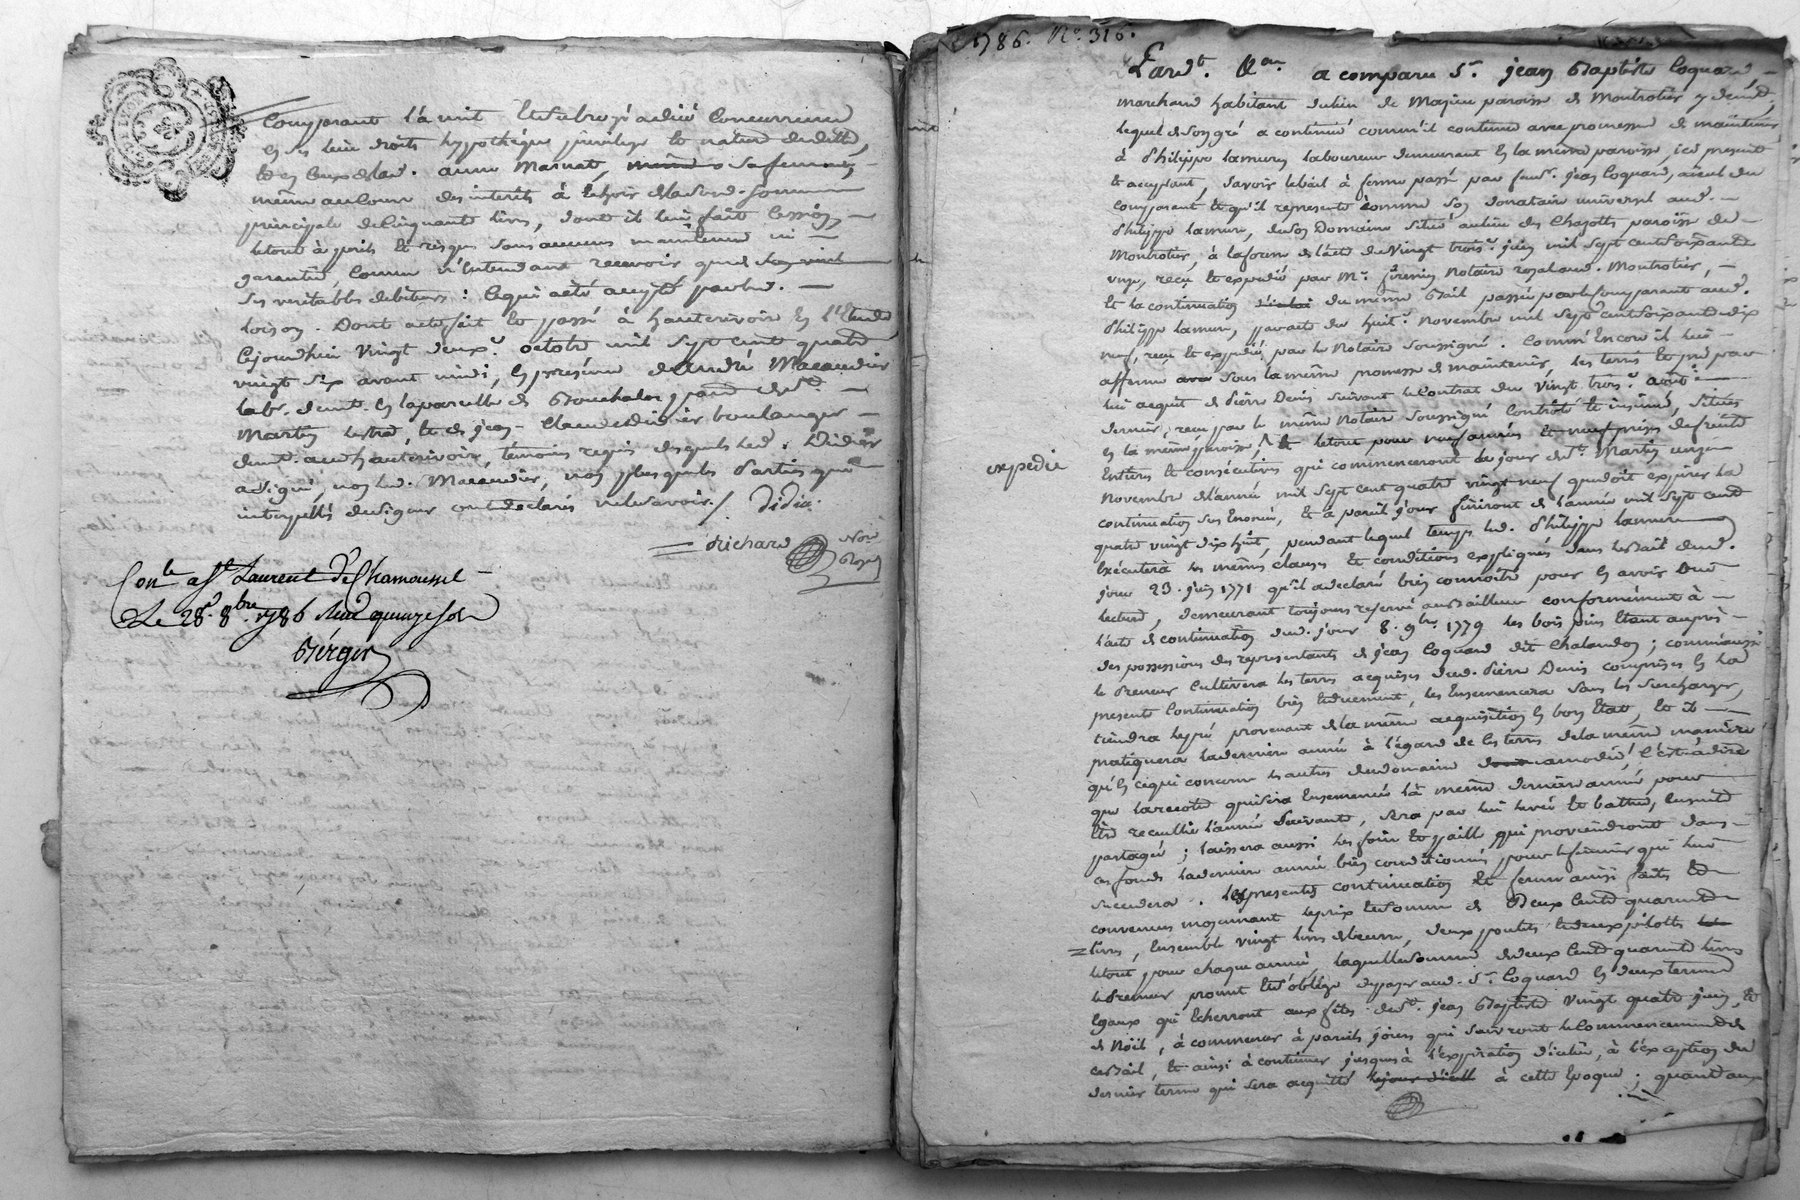 Comparant l'a mit
et ses leur droits hypothéque, privilege et nature de dette,
et en ceux de lad. anne Marnat,
même au cour des interits à échoir de lad. somme
principale de Cinquante livres, dont il leur fait Cession,
le tout à perils et risques sans aucune maintenue ni
garantie, comme n'entendant recevoir
ses veritables debiteurs : Ce qui a été accepté par led.
loison. Dont acte fait et passé à hauterivoire en l'Etude
Cejourdhui vingt deux.e octobre mil sept cent quatre
vingt six avant midi, En présence d'andré Macaudier
labr. demt. en la parcelle de
Martin lestra, et de jean-Claude didier boulanger
demt. aud. hauterivoire, témoins requis desquels led. Didier
a signé, non led. Macaudier, non plus que les parties qui
interpellés de signer ont declarés ne le savoir. / Didier
Richard Nore Royal
Conle. a St Laurent de Chamousset
Le 28 8bre. 1786 Reçu quinze sols
Bérger
1786. N°. 316.
Lard.t &.a a comparu S.r jean Baptiste Coquard,
marchand habitant du lieu de paroisse de Montrotier y demt,
lequel de son gré a continué comm'il continue avec promesse de maintenir
à Philippe lamure laboureur demeurant en la même paroisse, ici present
et acceptant, savoir le bail à ferme passé par feu S.r jean Coquard, aieul du
Comparant et qu'il represente comme son donataire universel aud.
Philippe lamure, de son Domaine situé au lieu des Chazotts paroisse de
Montrotier, à la forme de l'acte du Vingt trois.e juin mil sept cent soixante
onze, reçu et expedié par M.e Notaire royal aud. Montrotier,
et la continuation d'icelui du même Bail passée par le Comparant aud.
Philippe lamure, par acte du huit.e Novembre mil sept cent soixante dix
neuf, reçu et expedié par le Notaire soussigné. Comm'Encore il lui
afferme avec sous la même promesse de maintenir, les terres et pré par
lui acquit de Pierre Denis suivant le Contrat du Vingt trois.e août
dernier, reçu par le même Notaire soussigné Contrôlé et insinué, situés
en la même paroisse, et le tout pour neuf années et neuf prises de fruits
expedié
Entiers et consécutives qui commenceront du jour de St. Martin onze
Novembre de l'année mil sept cent quatre vingt neuf que doit expirer la
continuation sus Enoncée, et à pareil jour finiront de l'année mil sept cent
quatre vingt dix huit, pendant lequel temps led. Philippe lamure
Exécutera les mêmes clauses et conditions expliqués dans le Bail dud.
jour 23. juin 1771 qu'il a declaré bien connoître pour en avoir Eue
lecture, demeurant toujours reservé au Bailleur conformément à
l'acte de continuation dud. jour 8. 9bre. 1779 les bois pins Etant auprès
des possessions des representants de jean Coquard dit Chalandon; comm'aussi
le Preneur Cultivera les terres acquises dud. Pierre Denis comprises en la
presente Continuation bien et duement, les Ensemencera sans les surcharger,
tiendra le pré provenant de la même acquisition en bon Etat, et il
pratiquera la derniere année à l'égard de ces terres de la même maniere
qu'En ce qui concerne les autres du domaine amodié, C'est-à-dire
que la recolte qui sera Ensemencée la même derniere année pour
Etre recueillie l'année Suivante, sera par lui levée et battue, Ensuite
partagée; laissera aussi les foin et paille qui proviendront dans
ces fonds la derniere année bien conditionnés pour le fermier qui lui
succedera. les presentes continuation et ferme ainsi faites et
convenues moyennant le prix et somme de Deux Cent quarante
livres, Ensemble vingt livres de beurre, deux poulets et deux
le tout pour chaque année, laquelle somme de deux Cent quarante livres
le Preneur promet et s'oblige de payer aud. S.r Coquard En deux termes
Egaux qui Echerront aux fêtes de St. jean Baptiste Vingt quatre juin, et
de Noël, à commencer à pareils jours qui suivront le Commencement de
ce Bail, et ainsi à continuer jusques à l'expiration d'icelui, à l'exception du
dernier terme qui sera acquitté le jour d'icell à cette Epoque; quant aux